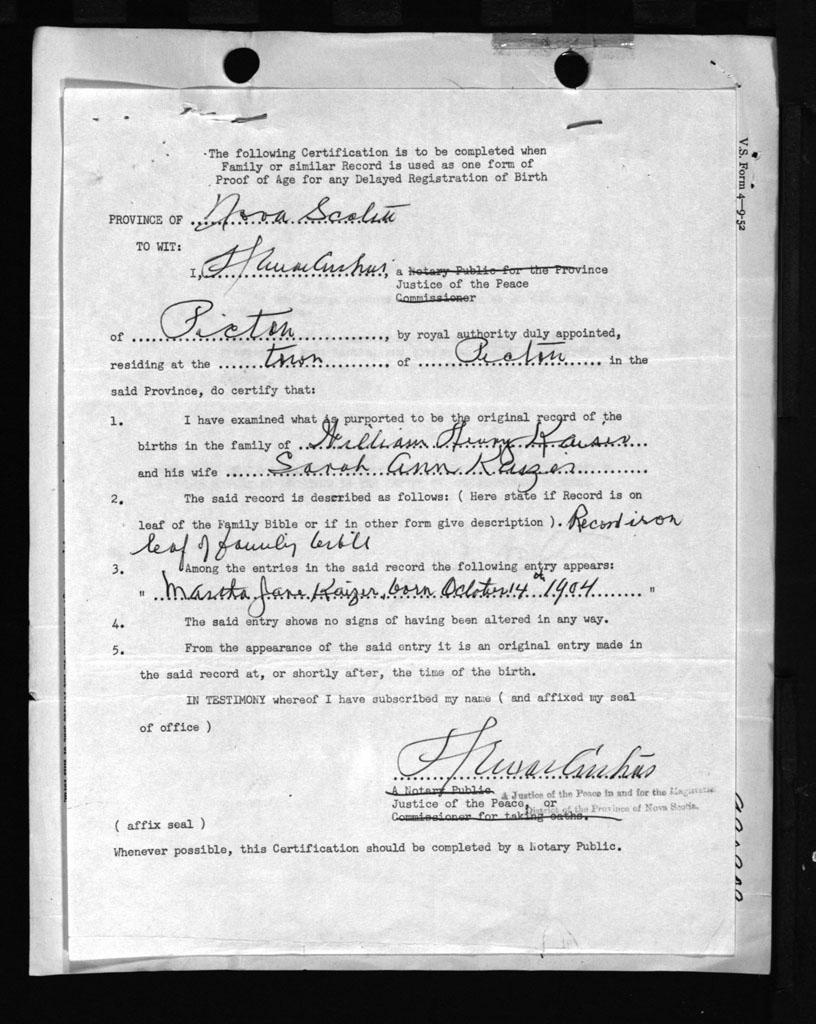 The following Certification is to be completed when
Family or similar Record is used as one form of
Proof of Age for any Delayed Registration of Birth
V.S. Form 4-9-52
PROVINCE OF Nova Scotia
TO WIT:
I, a Notary Public for the Province
Justice of the Peace
Commissioner
of Pictou, by royal authority duly appointed,
residing at the town of Pictou in the
said Province, do certify that:
1. I have examined what is purported to be the original record of the
births in the family of William Henry Kaizer
and his wife Sarah Ann Kaizer
2. The said record is described as follows: ( Here state if Record is on
leaf of the Family Bible or if in other form give description ). Record is on
leaf of family bible
3. Among the entries in the said record the following entry appears:
" Martha Jane Kaizer, born October 14th 1904 "
4. The said entry shows no signs of having been altered in any way.
5. From the appearance of the said entry it is an original entry made in
the said record at, or shortly after, the time of the birth.
IN TESTIMONY whereof I have subscribed my name ( and affixed my seal
of office )
A Notary Public
A Justice of the Peace in and for the Magisterial
Justice of the Peace, or
District of the Province of Nova Scotia.
Commissioner for taking oaths.
( affix seal )
Whenever possible, this Certification should be completed by a Notary Public.